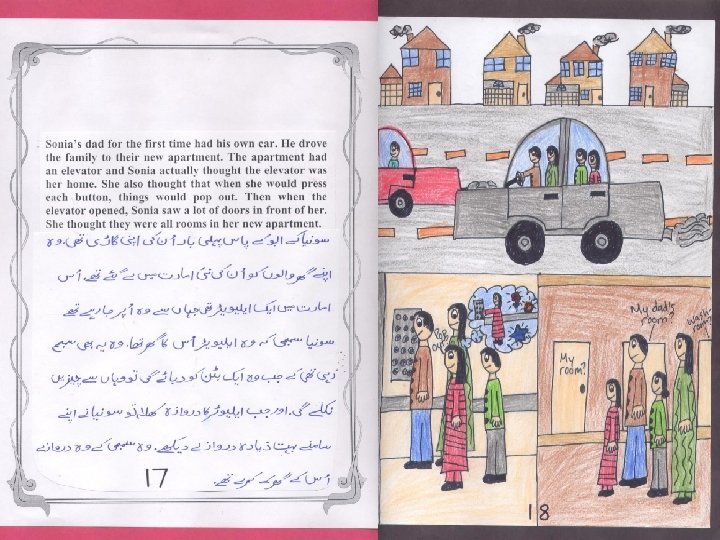 Sonia's dad for the first time had his own car. He drove
the family to their new apartment. The apartment had
an elevator and Sonia actually thought the elevator was
her home. She also thought that when she would press
each button, things would pop out. Then when the
elevator opened, Sonia saw a lot of doors in front of her.
She thought they were all rooms in her new apartment.
سونیا کے ابو کے پاس پہلی بار اُن کی اپنی گاڑی تھی۔ وہ
اپنے گھر والوں کو اُن کی نئی امارت میں لے گئے تھے۔ اُس
امارت میں ایک ایلیویٹر تھی جہاں سے وہ اُپر جا رہے تھے
سونیا سمجھی کہ وہ ایلیویٹر اُس کا گھر تھا۔ وہ یہ بھی سمجھ
رہی تھی کے جب وہ ایک بٹن کو دبائے گی تو وہاں سے چیزیں
نکلے گی۔ اور جب ایلیوٹر کا دروازہ کھلا تو سونیا نے اپنے
سامنے بہت زیادہ دروازے دیکھے۔ وہ سمجھی کے وہ دروازے
اُس کے گھر کے کمرے تھے۔
17
Pop out
My room?
My dad's room?
Washroom?
18